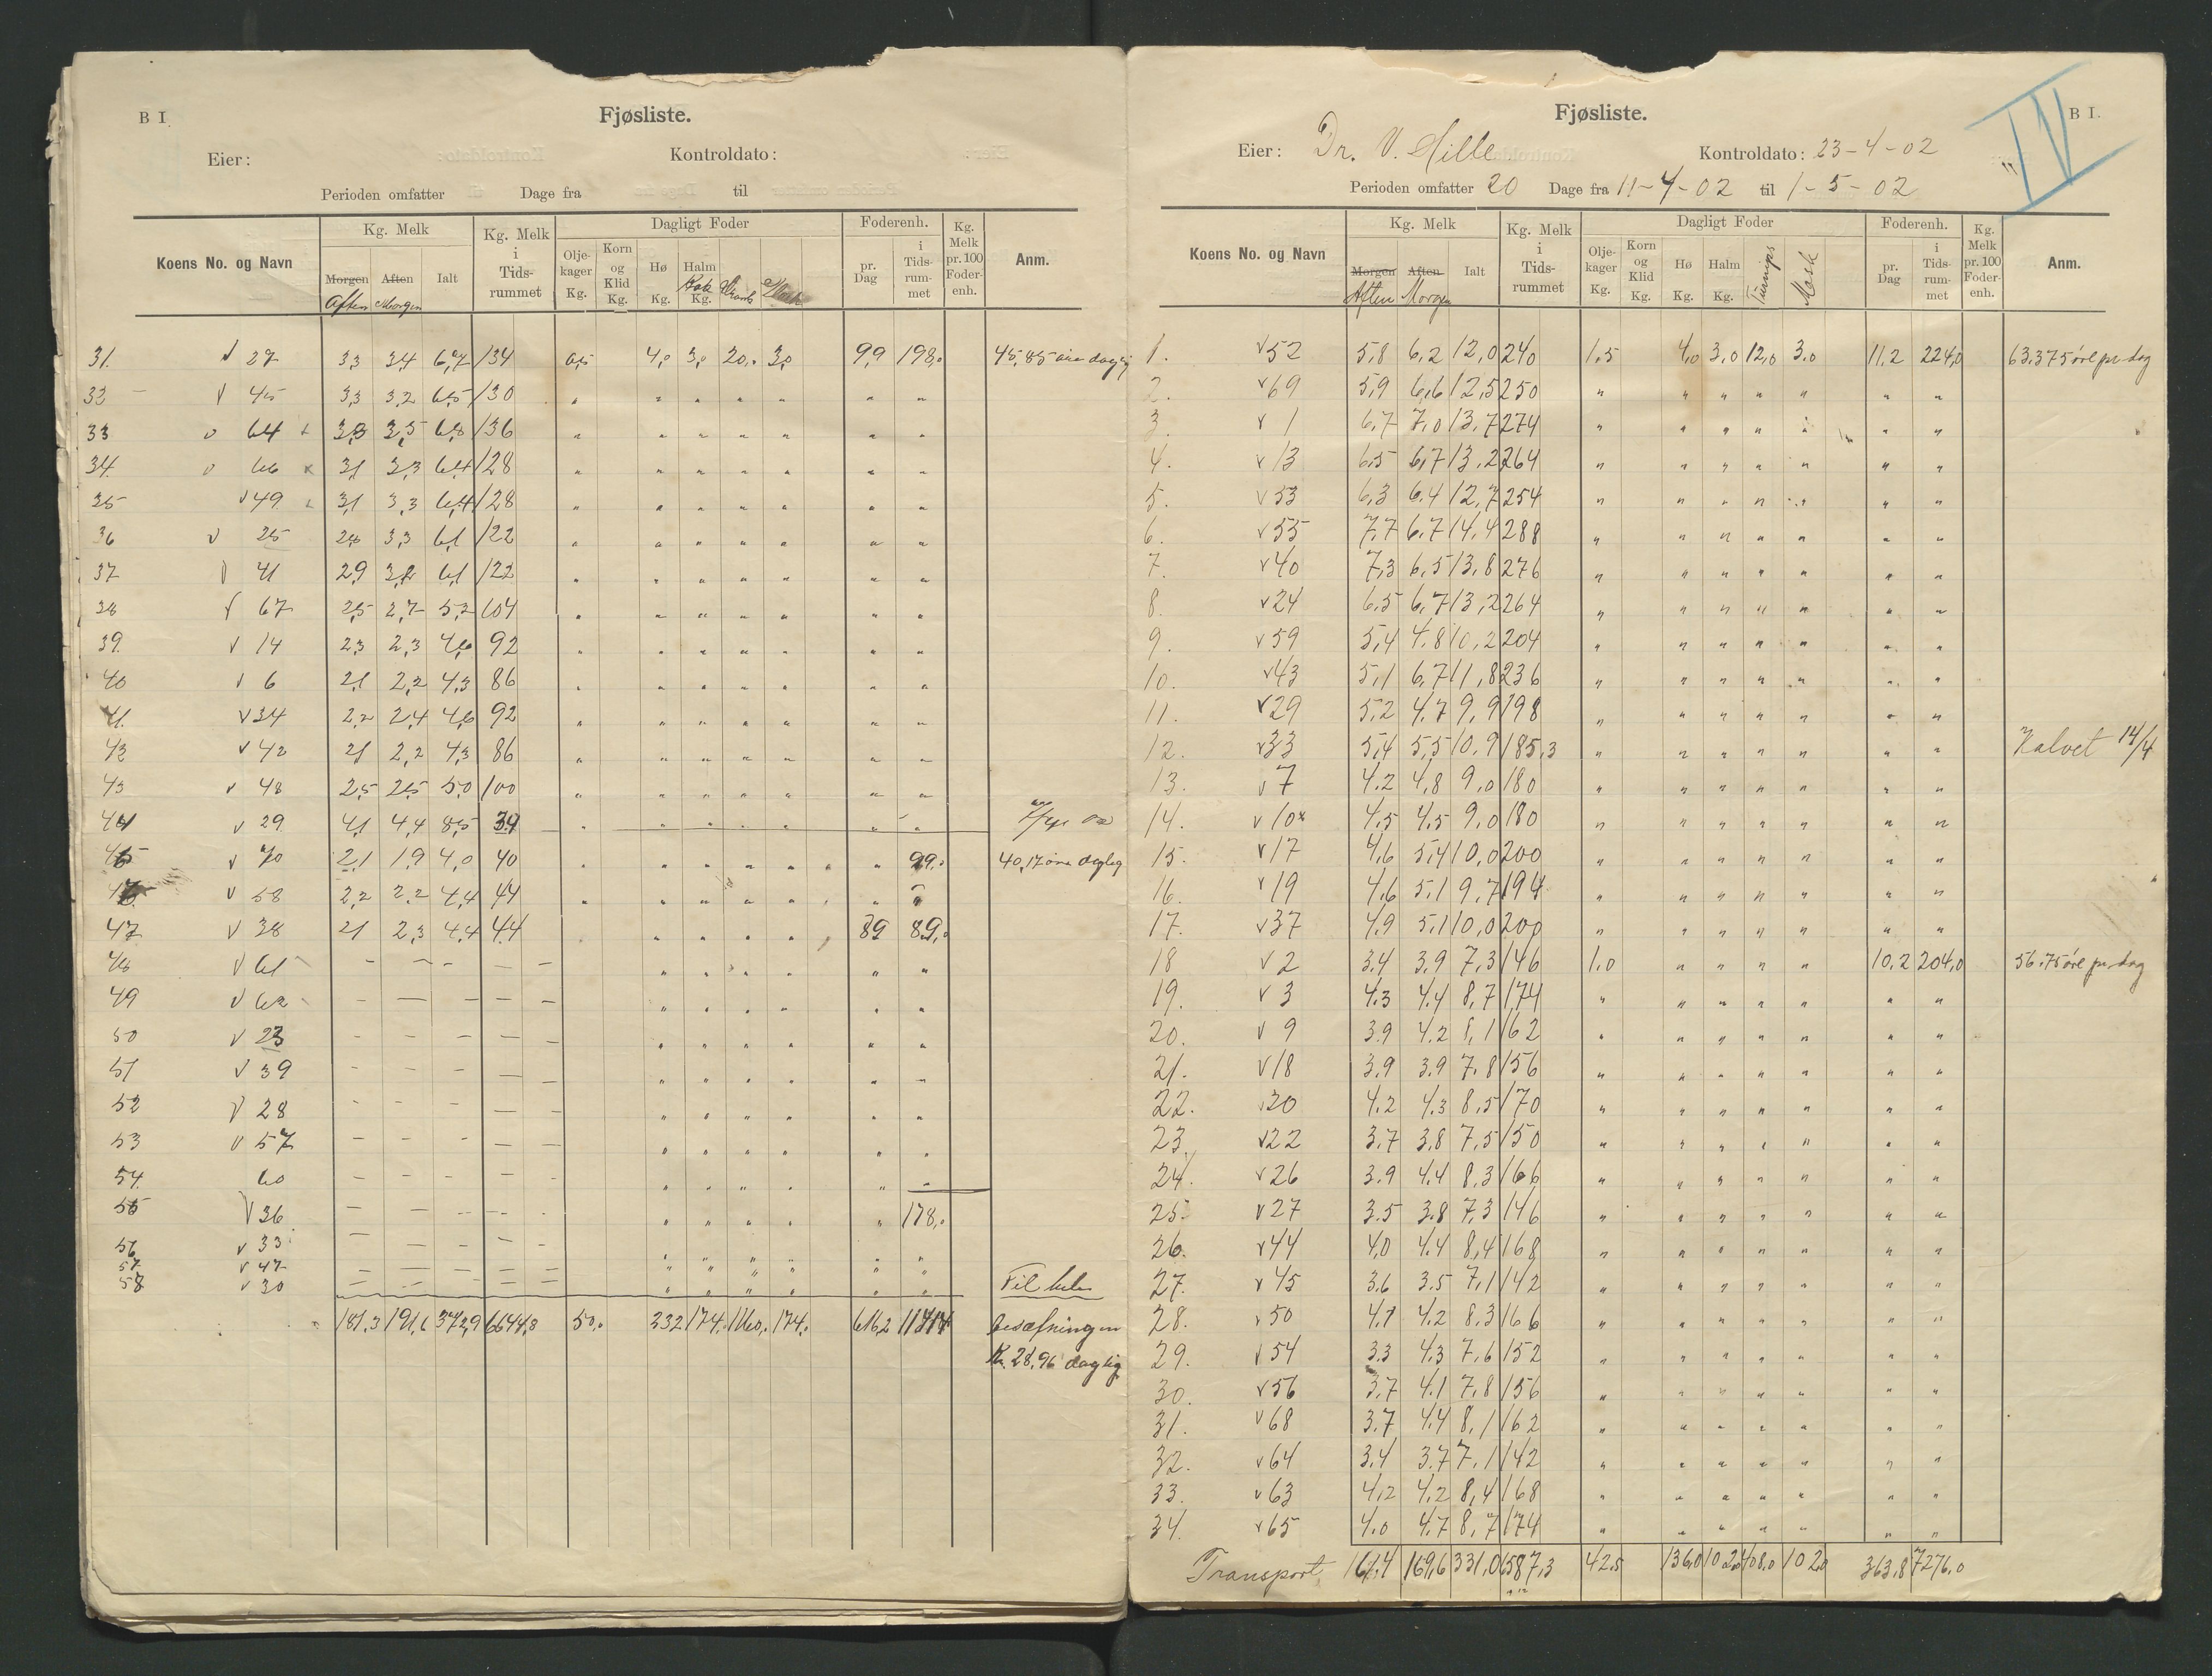 B I.
Fjøsliste.
Eier: Kontroldato:
Perioden omfatter Dage fra til
Koens No. og Navn Kg. Melk Kg. Melk i Tids-rummet Dagligt Foder Foderenh. Kg. Melk pr. 100 Foder-enh. Anm.
Morgen Aften Ialt Olje-kager Kg. Korn og Klid Kg. Hø Kg. Halm Kg. pr. Dag i Tids-rum-met
Aften Morgen
31. v 27 3,3 3,4 6,7 134 0,5 4,0 3,0 20,0 3,0 9,9 198,0 45,85 øre daglig
33 v 45 3,3 3,2 6,5 130 " " " " " " "
33 v 64 3,3 3,5 6,8 136 " " " " " " "
34. v 66 x 3,1 3,3 6,4 128 " " " " " " "
35 v 49 3,1 3,3 6,4 128 " " " " " " "
36 v 25 2,8 3,3 6,1 122 " " " " " " "
37 v 41 2,9 3,2 6,1 122 " " " " " " "
38 v 67 2,5 2,7 5,2 104 " " " " " " "
39. v 14 2,3 2,3 4,6 92 " " " " " " "
40 v 6 2,1 2,2 4,3 86 " " " " " " "
41. v 34 2,2 2,4 4,6 92 " " " " " " "
42 v 42 2,1 2,2 4,3 86 " " " " " " "
43 v 48 2,5 2,5 5,0 100 " " " " " " "
44 v 29 4,1 4,4 8,5 34 " " " " " " "
45 v 70 2,1 1,9 4,0 40 " " " " " " 99,0 40,17 øre daglig
46 v 58 2,2 2,2 4,4 44 " " " " " "
47 v 38 2,1 2,3 4,4 44 " " " " 8,9 89,0
48 v 61 – – – – – " " " " " "
49 v 62 – – – – – " " " " " "
50 v 23 – – – – – " " " " " "
51 v 39 – – – – – " " " " " "
52 v 28 – – – – – " " " " " "
53 v 57 – – – – – " " " " " "
54. 60 – – – – – " " " " " "
55 v 36 – – – – – " " " " " 178,0
56 v 33 – – – – – " " " " " "
57 v 47 – – – – – " " " " " "
58 v 30 – – – – – " " " " " "
181,3 191,6 372,9 6644,3 50,0 232 174,0 1160,0 174,0 616,2 11414
besætningen
Kr. 28,96 daglig
B I.
IV
Fjøsliste.
Eier: Dr. V. Hille Kontroldato: 23-4-02
Perioden omfatter 20 Dage fra 11-4-02 til 1-5-02
Koens No. og Navn Kg. Melk Kg. Melk i Tids-rummet Dagligt Foder Foderenh. Kg. Melk pr. 100 Foder-enh. Anm.
Morgen Aften Ialt Olje-kager Kg. Korn og Klid Kg. Hø Kg. Halm Kg. Turnips Mask pr. Dag i Tids-rum-met
Aften Morgen
1. v 52 5,8 6,2 12,0 240 1,5 4,0 3,0 12,0 3,0 11,2 224,0 63,375 øre pr dag
2. v 69 5,9 6,6 12,5 250 " " " " " " "
3. v 1 6,7 7,0 13,7 274 " " " " " " "
4. v 13 6,5 6,7 13,2 264 " " " " " " "
5. v 53 6,3 6,4 12,7 254 " " " " " " "
6. v 55 7,7 6,7 14,4 288 " " " " " " "
7. v 40 7,3 6,5 13,8 276 " " " " " " "
8. v 24 6,5 6,7 13,2 264 " " " " " " "
9. v 59 5,4 4,8 10,2 204 " " " " " " "
10. v 43 5,1 6,7 11,8 236 " " " " " " "
11. v 29 5,2 4,7 9,9 198 " " " " " " "
12. v 33 5,4 5,5 10,9 185,3 " " " " " " " Kalvet 14/4
13. v 7 4,2 4,8 9,0 180 " " " " " " "
14. v 10x 4,5 4,5 9,0 180 " " " " " " "
15. v 17 4,6 5,4 10,0 200 " " " " " " "
16. v 19 4,6 5,1 9,7 194 " " " " " " "
17. v 37 4,9 5,1 10,0 200 " " " " " " "
18 v 2 3,4 3,9 7,3 146 1,0 " " " " 10,2 204,0 56,75 øre pr dag
19. v 3 4,3 4,4 8,7 174 " " " " " " "
20. v 9 3,9 4,2 8,1 162 " " " " " " "
21. v 18 3,9 3,9 7,8 156 " " " " " " "
22. v 20 4,2 4,3 8,5 170 " " " " " " "
23. v 22 3,7 3,8 7,5 150 " " " " " " "
24. v 26 3,9 4,4 8,3 166 " " " " " " "
25. v 27 3,5 3,8 7,3 146 " " " " " " "
26. v 44 4,0 4,4 8,4 168 " " " " " " "
27. v 45 3,6 3,5 7,1 142 " " " " " " "
28. v 50 4,1 4,2 8,3 166 " " " " " " "
29. v 54 3,3 4,3 7,6 152 " " " " " " "
30. v 56 3,7 4,1 7,8 156 " " " " " " "
31. v 68 3,7 4,4 8,1 162 " " " " " " "
32. v 64 3,4 3,7 7,1 142 " " " " " " "
33. v 63 4,2 4,2 8,4 168 " " " " " " "
34. v 65 4,0 4,7 8,7 174 " " " " " " "
Transport 161,4 169,6 331,0 6587,3 42,5 136,0 102,0 408,0 102,0 363,8 7276,0